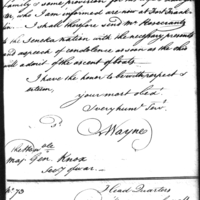 family & some provision for
who, I am informed are now at Fort Frank-
lin. I shall therefore send Mr Rosecrantz
to the Seneka nation with the necessary presents
and a speech of condolence as soon as the Ohio
will admit of the ascent of boats
I have the honor to be with respect &
esteem,
your most obed.
& very hum. Serv.
Wayne
The Hon ble
Maj Gen. Knox
Sec.y of war.
No. 73
Head Quarters